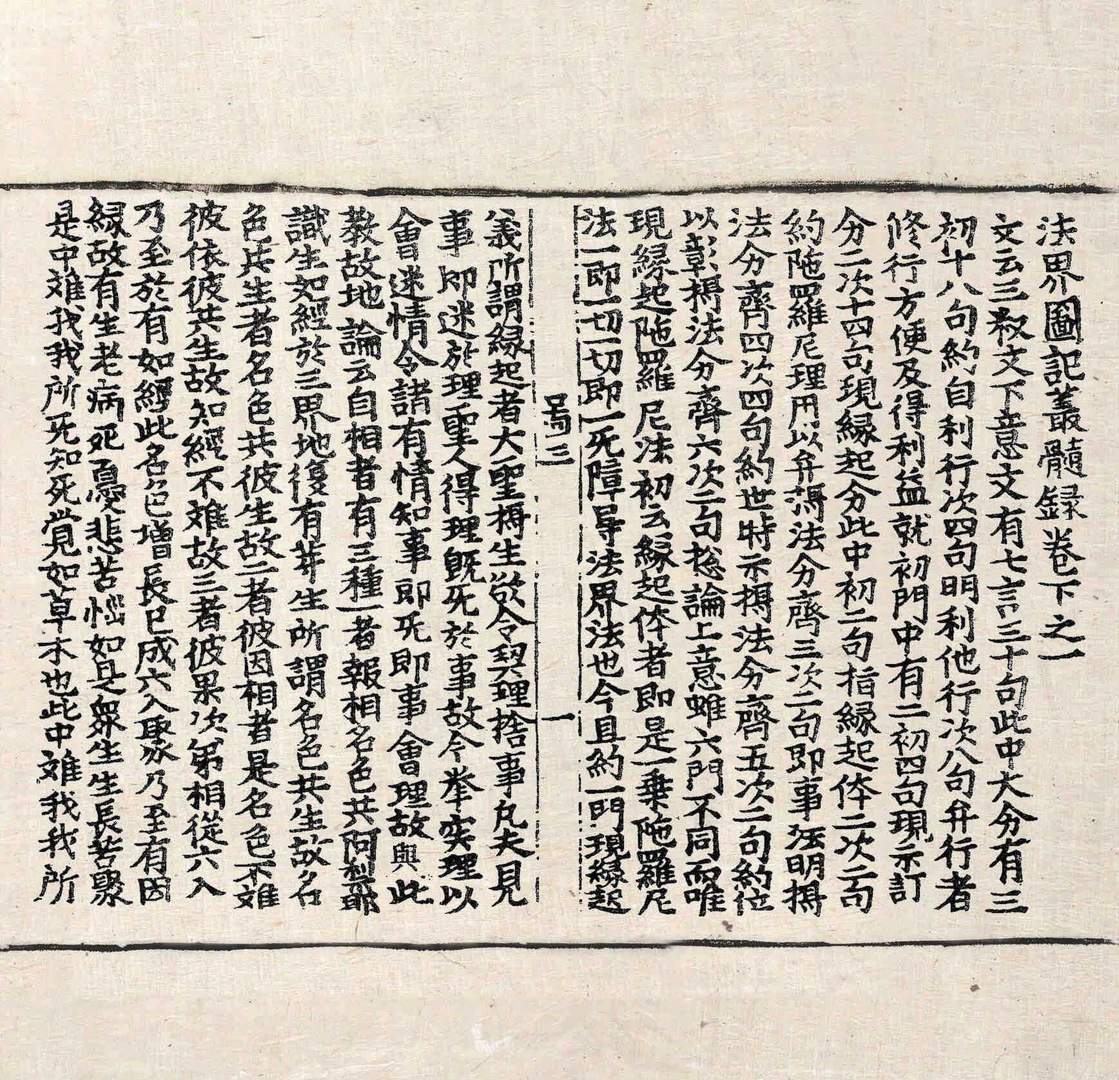 法界圖記叢髓録卷下之一
文云三叙文下意文有七言三十句此中大分有三
初十八句約自利行次四句明利他行次八句弁行者
修行方便及得利益就初門中有二初四句現示訂
分二次十四句現縁起分此中初二句指縁起体二次二句
約陁羅尼理用以弁攝法分齊三次二句即事法明攝
法分齊四次四句約世時示攝法分齊五次二句約位
以彰攝法分齊六次二句揔論上意雖六門不同而唯
現縁起陁羅尼法初云縁起体者即是一乗陁羅尼
法一即一切一切即一无障㝵法界法也今且約一門現縁起
三 一
義所謂縁起者大聖攝生欲令契理捨事凡夫見
事即迷於理聖人得理旣无於事故今举实理以
會迷情令諸有情知事即无即事會理故與此
教故地論云自相者有三種一者報相名色共阿梨耶
識生如經於三界地復有芽生所謂名色共生故名
色共生者名色共彼生故二者彼因相者是名色不離
彼依彼共生故知經不離故三者彼果次第相從六入
乃至於有如經此名色增長已成六入聚乃至有因
縁故有生老病死憂悲苦惱如是衆生生長苦聚
是中離我我所无知无覺如草木也此中離我我所